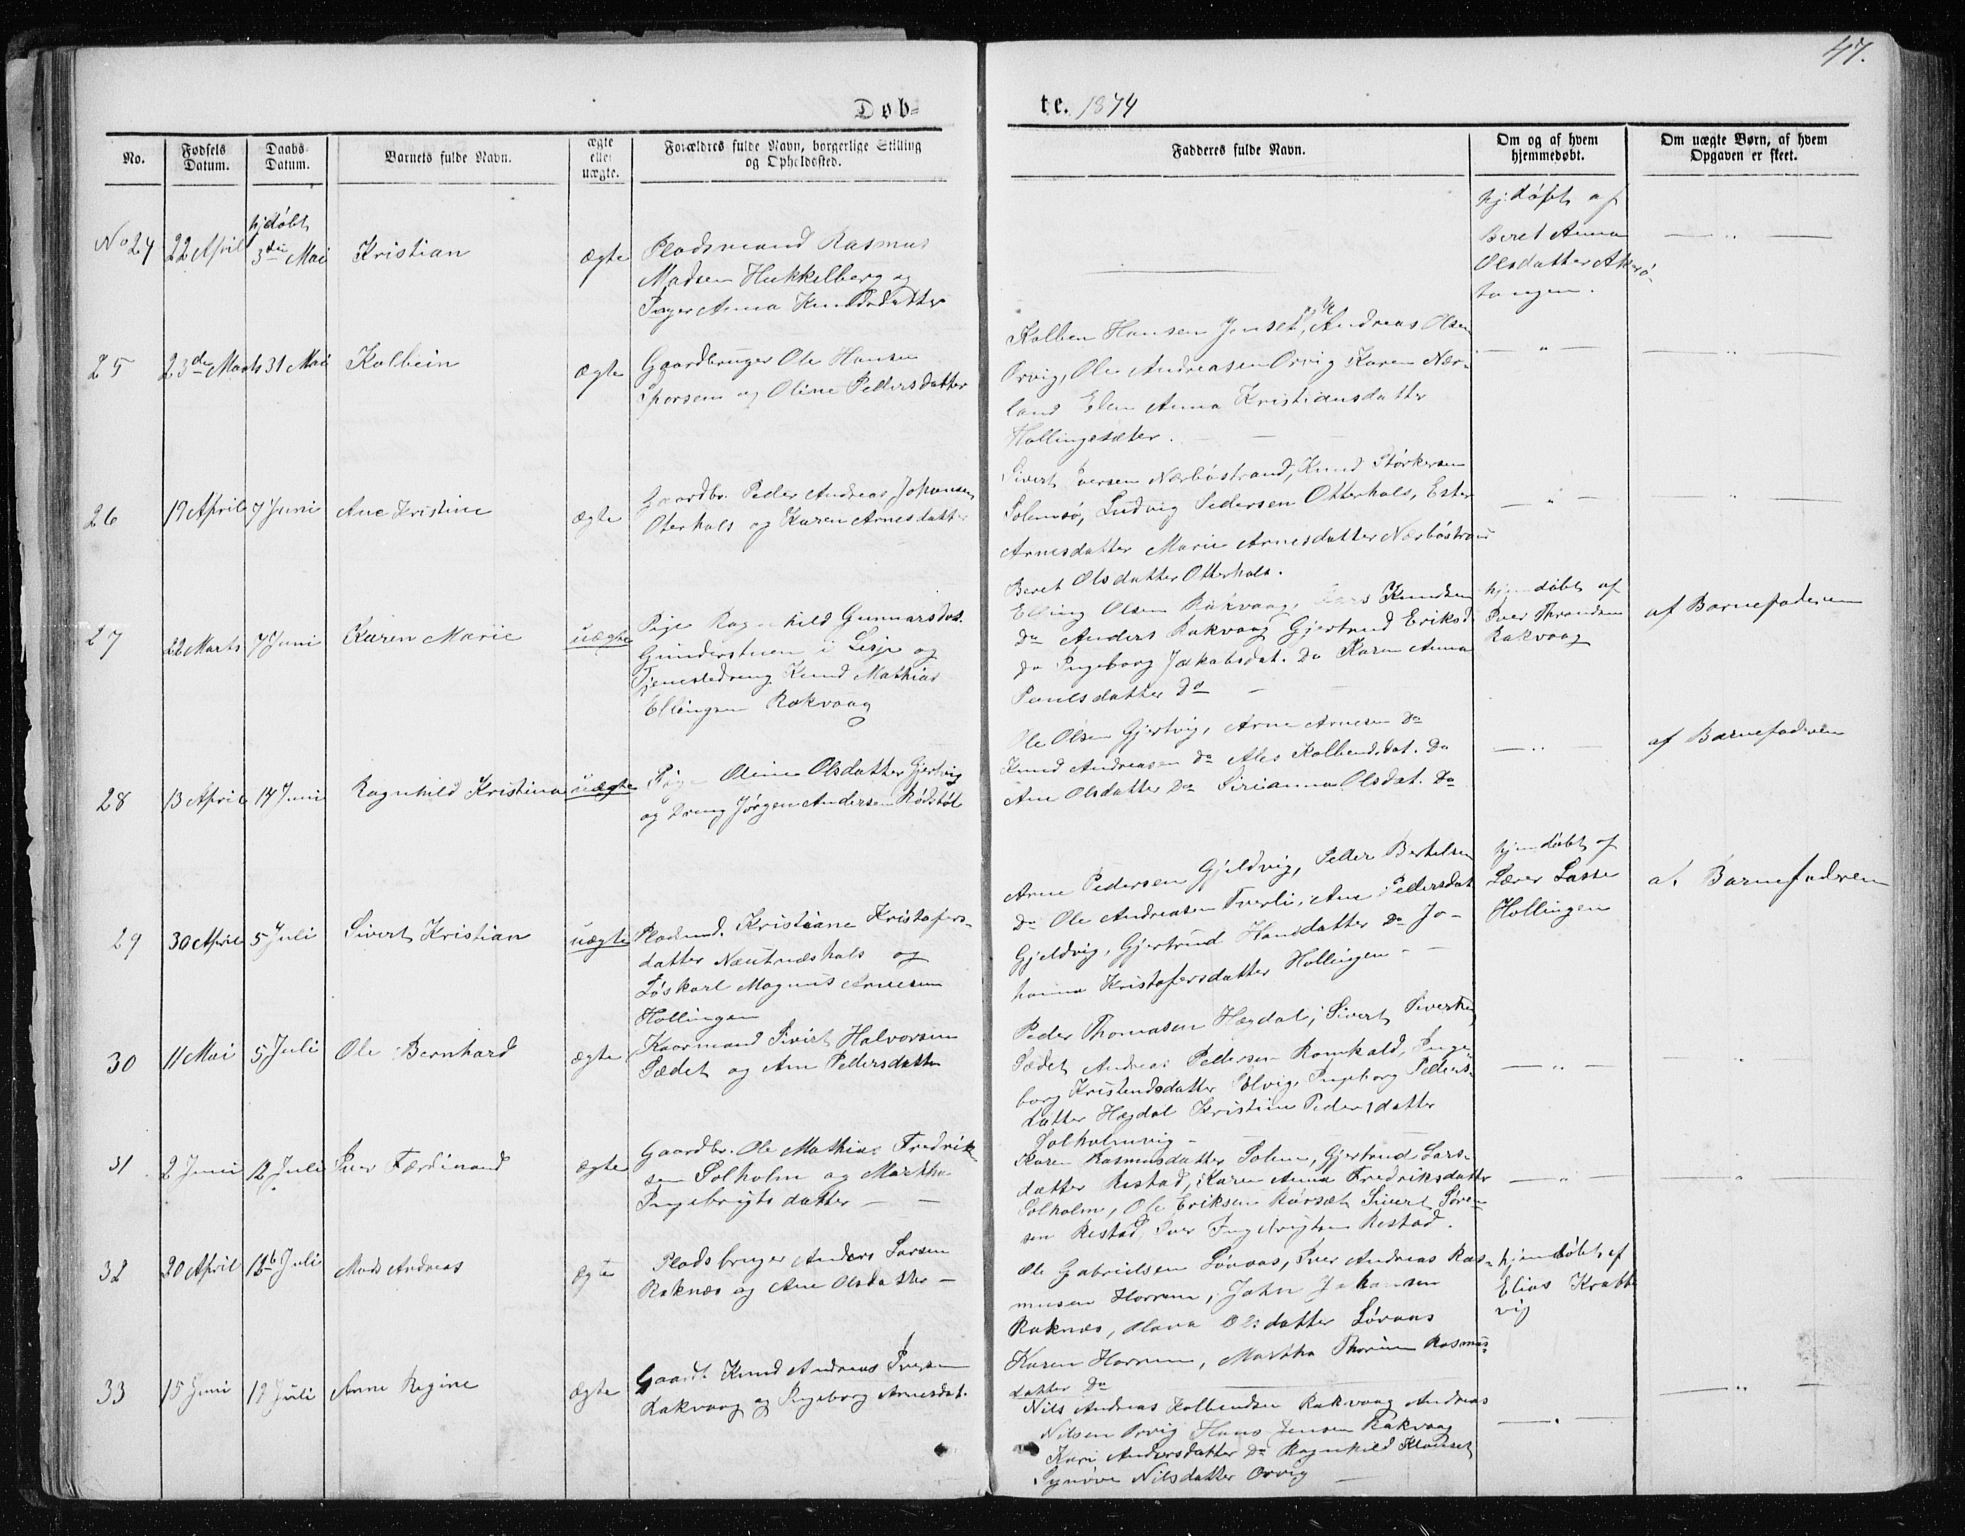 47.
Døb-
te. 1874
No.
Fødsels Datum.
Daabs- Datum.
Barnets fulde Navn.
ægte eller uægte.
Forældres fulde Navn, borgerlige Stilling
og Opholdssted.
Faddernes fulde Navn.
Om og af hvem
hjemmedøbt.
Om uægte Børn, af hvem
Opgaven er skeet.
No 24
22 April
hjdøbt
3die Mai
Kristian
ægte
Pladsmand Rasmus
Madsen Hukkelberg og
Anna Knudsdatter
hjdøbt af
Beret Anna
Olsdatter Akerø
tangen.
25
23de Marts
31 Mai
Kolbein
ægte
Gaardbruger Ole Hansen
Sporsem og Oline Pedersdatter
Kolben Hansen Jenset, Andreas Olsen
Orvig, Ole Andreasen Orvig Karen Nær-
land Elen Anna Kristiansdatter
Hollingsæter.
26
19 April
7 Juni
Ane Kristine
ægte
Gaardbr. Peder Andreas Johansen
Oterhals og Karen Arnesdatter
Sivert Iversen Nærbøstrand, Knud Størkersen
Solemsø, Ludvig Pedersen Otterhals, Ester
Arnesdatter Marie Arnesdatter Nærbøstrand
Beret Olsdatter Otterhals.
27
22 Marts
7 Juni
Karen Marie
uægte
Pige Ragnhild Gunnarsdat.
Gunderstuen i Lesje og
Tjenestedreng Knud Mathias
Ellingsen Rakvaag
Elling Olsen Rakvaag, Lars Knudsen
Do Anders Rakvaag Gjertrud Eriksd
do Ingeborg Jakobsdat. Do Karen Anna
Paulsdatter Do
hjemdøbt af
Iver Throndsen
Rakvaag
af Barnefaderen
28
13 April
14 Juni
Ragnhild Kristina
uægte
Pige Oline Olsdatter Gjertvig
og Dreng Jørgen Andersen Rødstøl
Ole Olsen Gjertvig, Arne Arnesen Do
Knud Andreasen Do Ales Kolbensdat. Do
Ane Olsdatter Do Sirianna Olsdat. Do
af Barnefaderen
29
30 April
5 Juli
Sivert Kristian
uægte
Pladsmd. Kristiane Kristofers-
datter Nautneshals og
Løskarl Magnus Arnesen
Hollingen
Arne Pedersen Gjeldvig, Peder Bertelsen
do Ole Andreasen Tverli, Ane Pedersdat
Gjeldvig, Gjertrud Hansdatter Do Jo-
hanna Kristofersdatter Hollingen
hjemdøbt af
Lærer Lasse
Hollingen
af Barnefaderen
30
11 Mai
5 Juli
Ole Bernhard
ægte
Kaarmand Sivert Halvorsen
Sædet og Ane Pedersdatter
Peder Thomasen Hægdal, Sivert Sivertsen
Sædet Andreas Pedersen Romkald, Inge-
borg Kristensdatter Ingeborg Peders-
datter Hægdal Kristine Pedersdatter
Solholmvig
31
2 Juni
12 Juli
Iver Færdinand
ægte
Gaardbr. Ole Mathias Fredrik-
sen Solholm og Martha
Ingebrigtsdatter
Karen Rasmusdatter Solem, Gjertrud Lars-
datter Restad, Karen Anna Fredriksdatter
Solholm, Ole Eriksen Rørsæt Sivert Søren-
sen Restad, Iver Ingebrigtsen Restad.
32
20 April
12 Juli
Mads Andreas
ægte
Pladsbruger Anders Larsen
Raknæs og Ane Olsdatter
Ole Gabrielsen Løvaas, Iver Andreas Ras-
musen Horrem, John Johansen
Raknæs, Olava Olsdatter Løvaas
Karen Horrem, Martha Thorine Rasmus-
datter Do
hjemdøbt af
Elias Krabbe
vig
33
15 Juni
17 Juli
Anne Regine
ægte
Gaardt Knud Andreas Iversen
Rakvaag og Ingeborg Arnesdat.
Nils Andreas Kolbendsen Rakvaag Andreas
Nilsen Orvig Hans Jensen Rakvaag
Kari Andersdatter Do Ragnhild Klauset
Synøve Nilsdatter Orvig